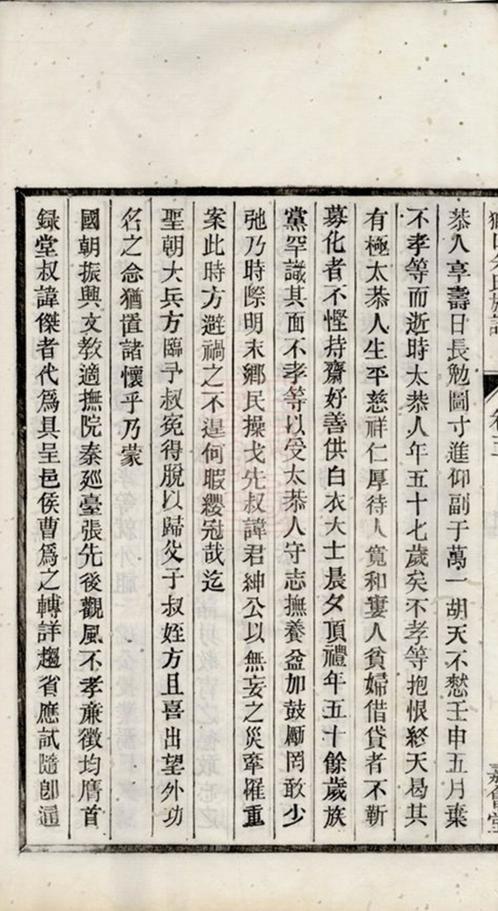 恭人享壽日長勉圖寸進仰副于萬一胡天不憖壬申五月棄
不孝等而逝時太恭人年五十七歲矣不孝等抱恨終天曷其
有極太恭人生平慈祥仁厚待人寬和寠人貧婦借貸者不靳
募化者不慳持齋好善供白衣大士晨夕頂禮年五十餘歲族
黨罕識其面不孝等以受太恭人守志撫養益加鼓厲罔敢少
弛乃時際明末鄉民操戈先叔諱君紳公以無妄之災牽罹重
案此時方避禍之不遑何暇纓冠哉迄
聖朝大兵方臨予叔寃得脫以歸父子叔姪方且喜出望外功
名之念猶置諸懷乎乃蒙
國朝振興文教適撫院秦廵臺張先後觀風不孝亷徵均膺首
録堂叔諱傑者代爲具呈邑侯曹爲之轉詳趨省應試隨卽通